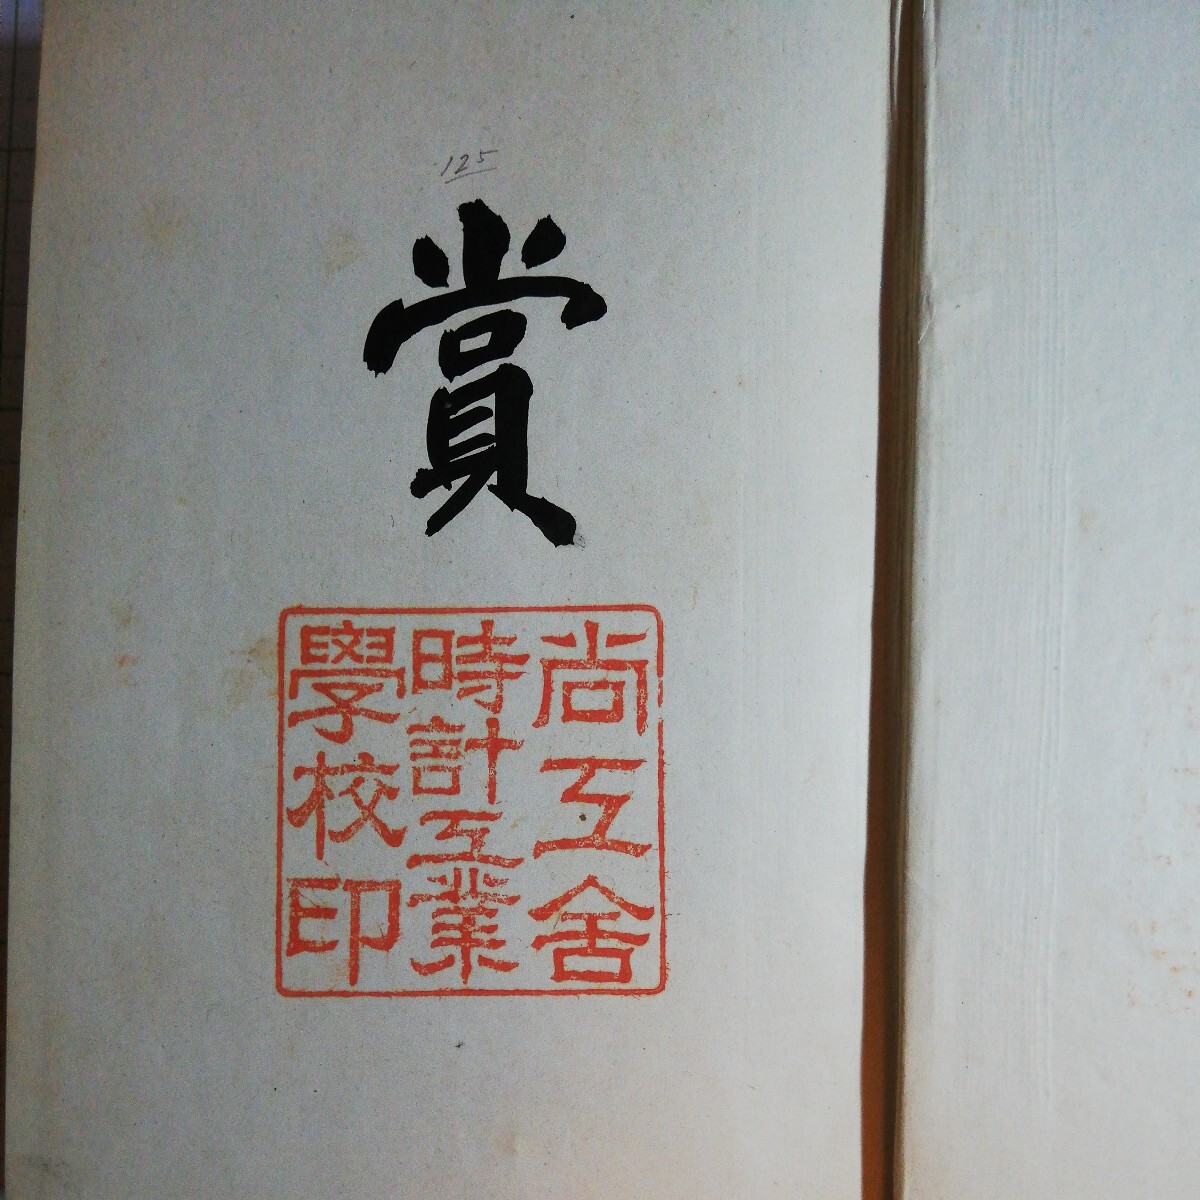 125
賞
尚工舎
時計工業
學校印